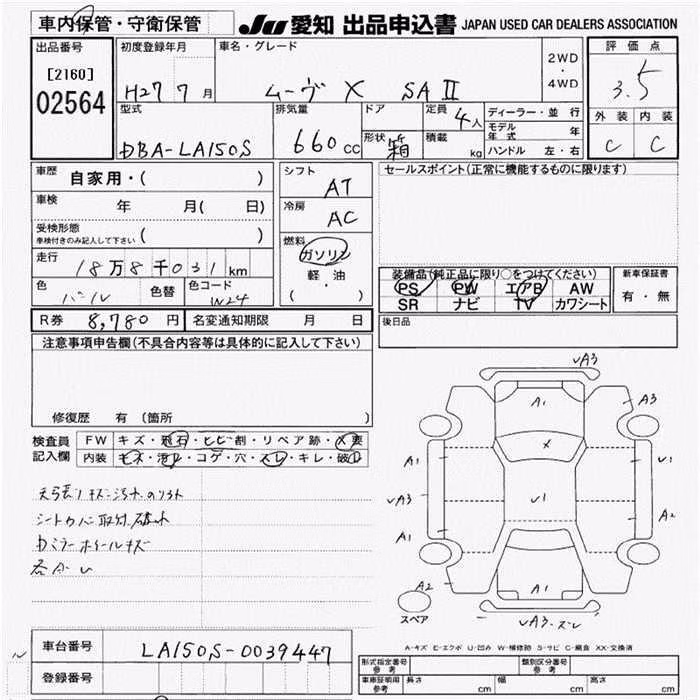 車内保管・守衛保管
JU 愛知 出品申込書 JAPAN USED CAR DEALERS ASSOCIATION
出品番号 初度登録年月 車名・グレード 2WD・4WD 評価点
[2160] 02564 H27 7月 ムーヴ X SAⅡ 3.5
型式 排気量 ドア 定員 4人 ディーラー・並行 外装 内装
DBA-LA150S 660cc 形状 箱 積載 kg モデル年式 年 C C
ハンドル 左・右
車歴 自家用・( ) シフト AT セールスポイント(正常に機能するものに限ります)
車検 年 月( 日) 冷房 AC
受検形態 車検付きのみ記入して下さい ( ) 燃料 ガソリン
走行 18万8千031km 軽・油 ( ) 装備品(純正品に限り○をつけてください) 新車保証書
色 パール 色替 色コード W24 PS PW エアB AW 有・無
SR ナビ TV カワシート
R券 8,780円 名変通知期限 月 日 後日品
注意事項申告欄(不具合内容等は具体的に記入して下さい)
修復歴 有 〔箇所 〕
検査員記入欄 FW キズ・飛石・ヒビ割・リペア跡・X要
内装 キズ・汚レ・コゲ・穴・スレ・キレ・破レ
シートカバー取付
ミラーホイールキズ
√A3
A1 A3
X
A1 √1
√A3 √1 A2
A1
A2 A1
スペア √A3・ズレ
A-キズ E-エクボ U-凹み W-補修跡 S-サビ C-腐食 XX-交換済
車台番号 LA150S-0039447
登録番号
形式指定番号 参考 類別区分番号 参考
車庫証明用 参考 長さ cm 幅 cm 高さ cm